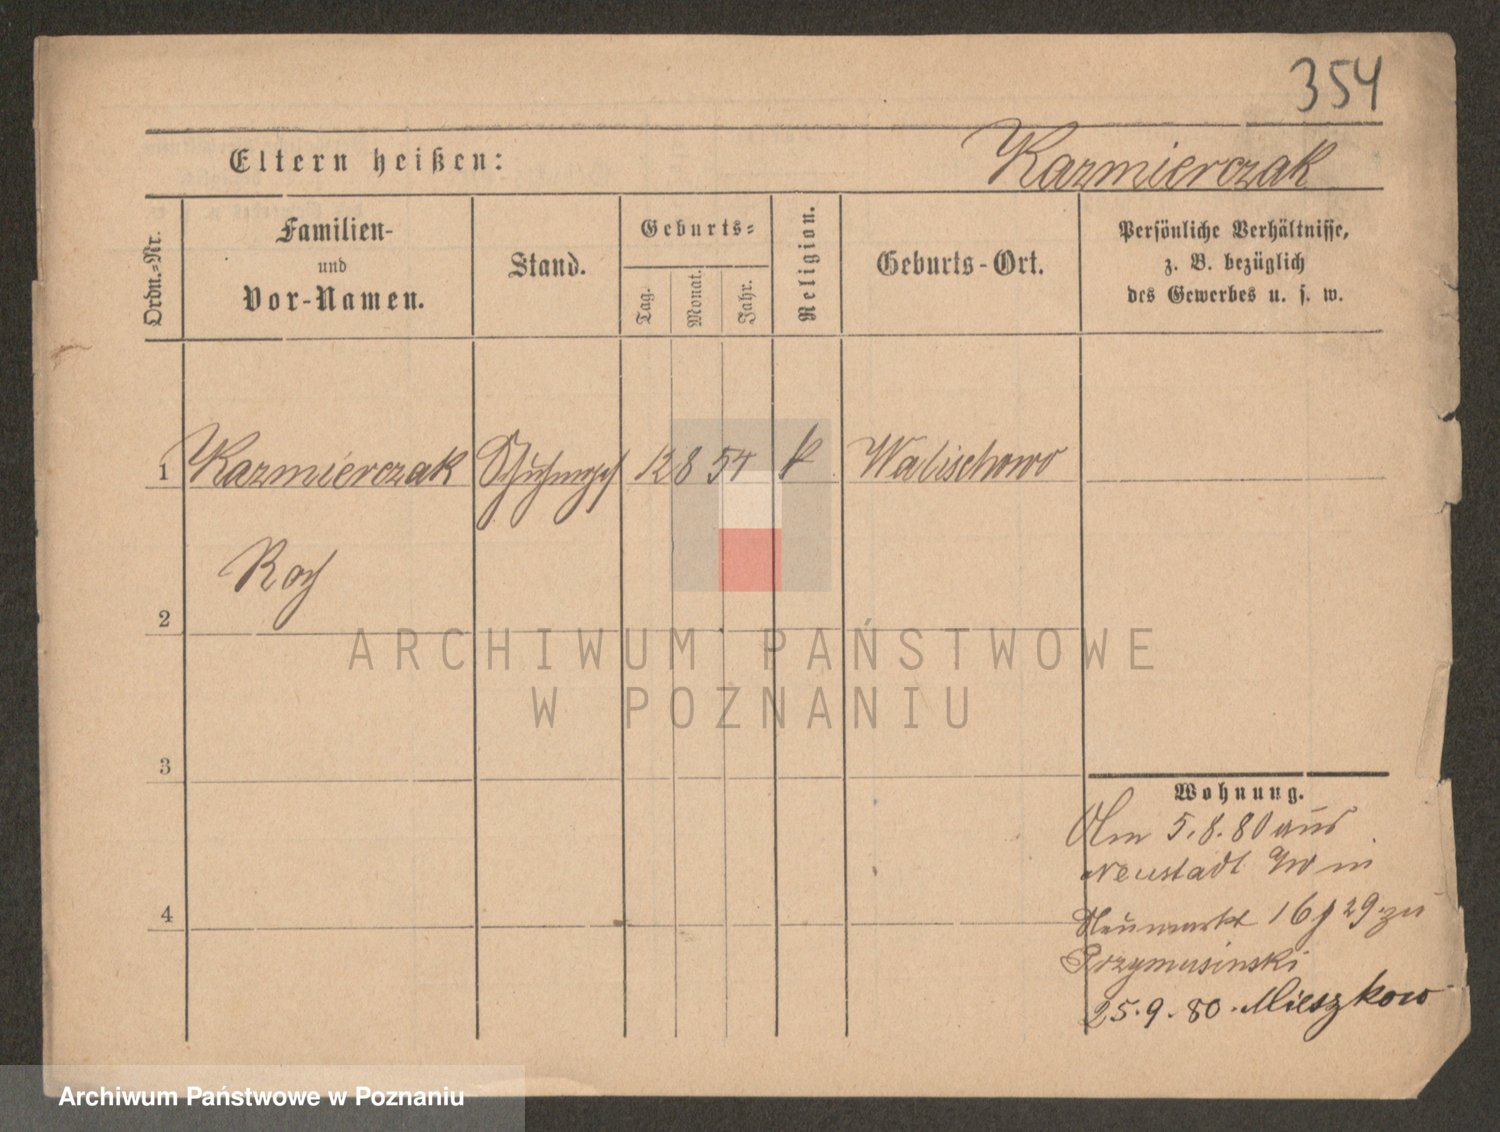 354
Eltern heißen:
Kazmierczak
Ordn.-Nr.
Familien-
und
Vor-Namen.
Stand.
Geburts-
Tag.
Monat.
Jahr.
Religion.
Geburts-Ort.
Persönliche Verhältnisse,
z. B. bezüglich
des Gewerbes u. s. w.
1 Kazmierczak 12 8 54 k Walischowo
Roch
2
3
4
ARCHIWUM PAŃSTWOWE
W POZNANIU
Wohnung.
5.8.80 aus
Neustadt
Neumarkt 16 29 zu
Przymusinski
25.9.80. Mieszkow
Archiwum Państwowe w Poznaniu